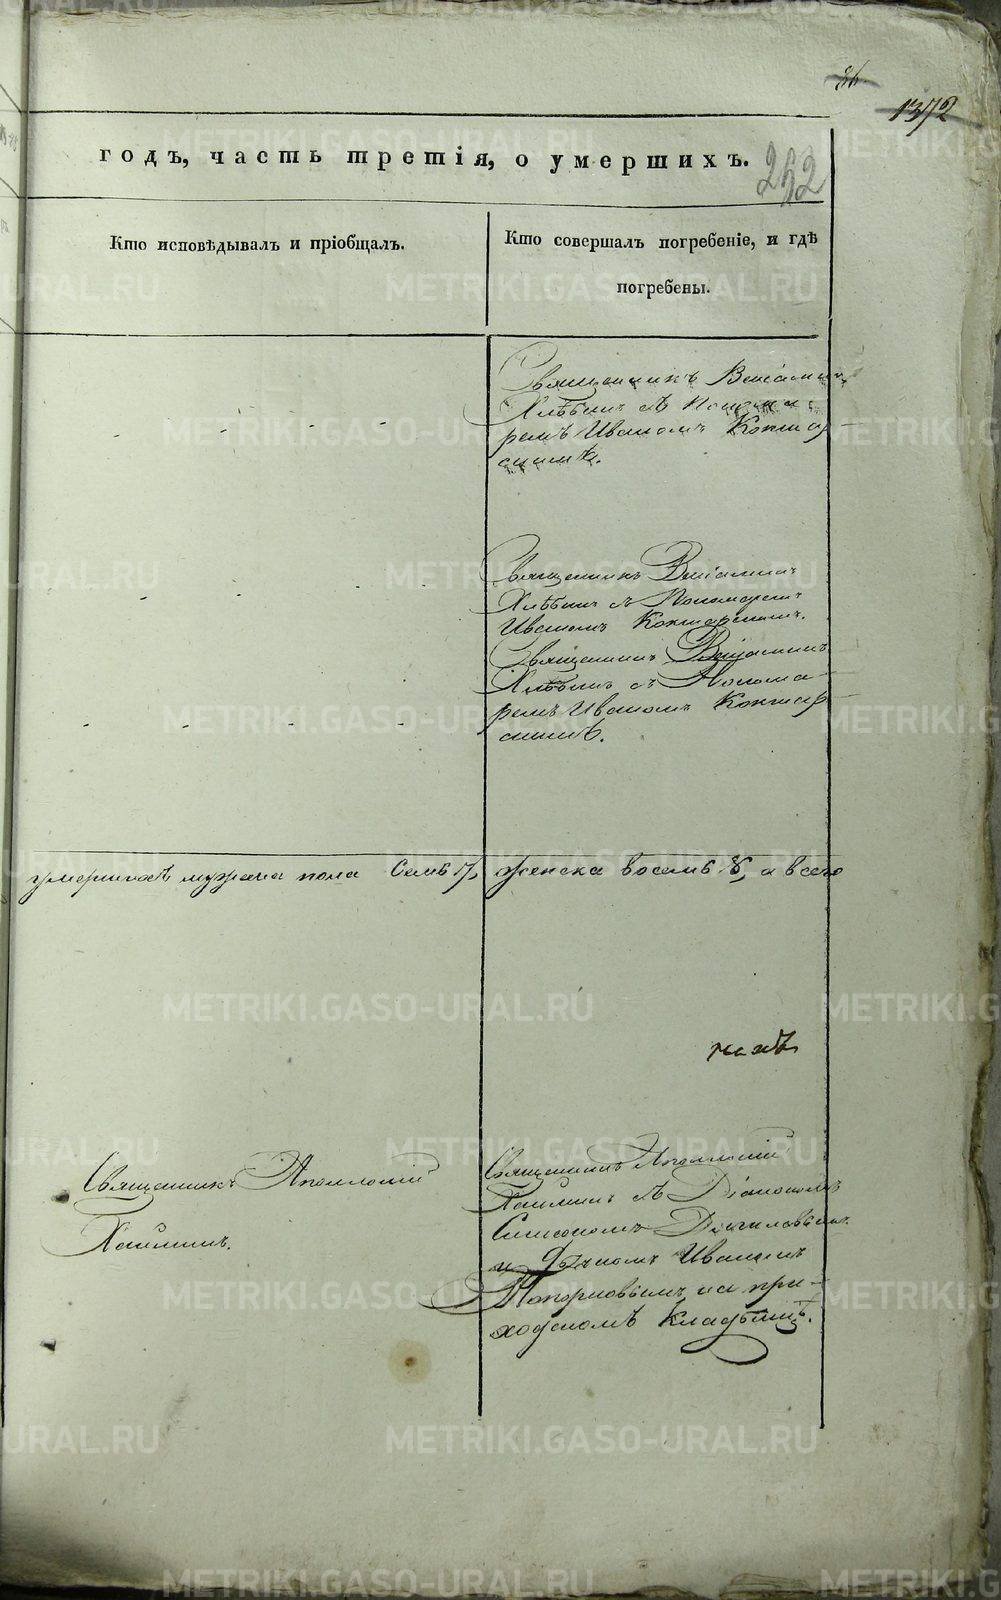 86.
1372
годъ, часть третія, о умершихъ.
252
Кто исповѣдывалъ и пріобщалъ.
Кто совершалъ погребеніе, и гдѣ
погребены.
Священникъ Веніаминъ
Хлѣбинъ съ Понома-
ремъ Иваномъ Коктар-
скимъ.
Священникъ Веніаминъ
Хлѣбинъ съ Пономаремъ
Иваномъ Коктарскимъ.
Священникъ Веніаминъ
Хлѣбинъ съ Понома-
ремъ Иваномъ Коктар-
скимъ.
умершихъ мужеска пола Семь 7, женска восемь 8, а всего
Священникъ Аполлоній
Священникъ Аполлоній
съ Діакономъ
Симеономъ
и Иваномъ
Топорковымъ на при-
ходскомъ Кладбищѣ.
METRIKI.GASO-URAL.RU